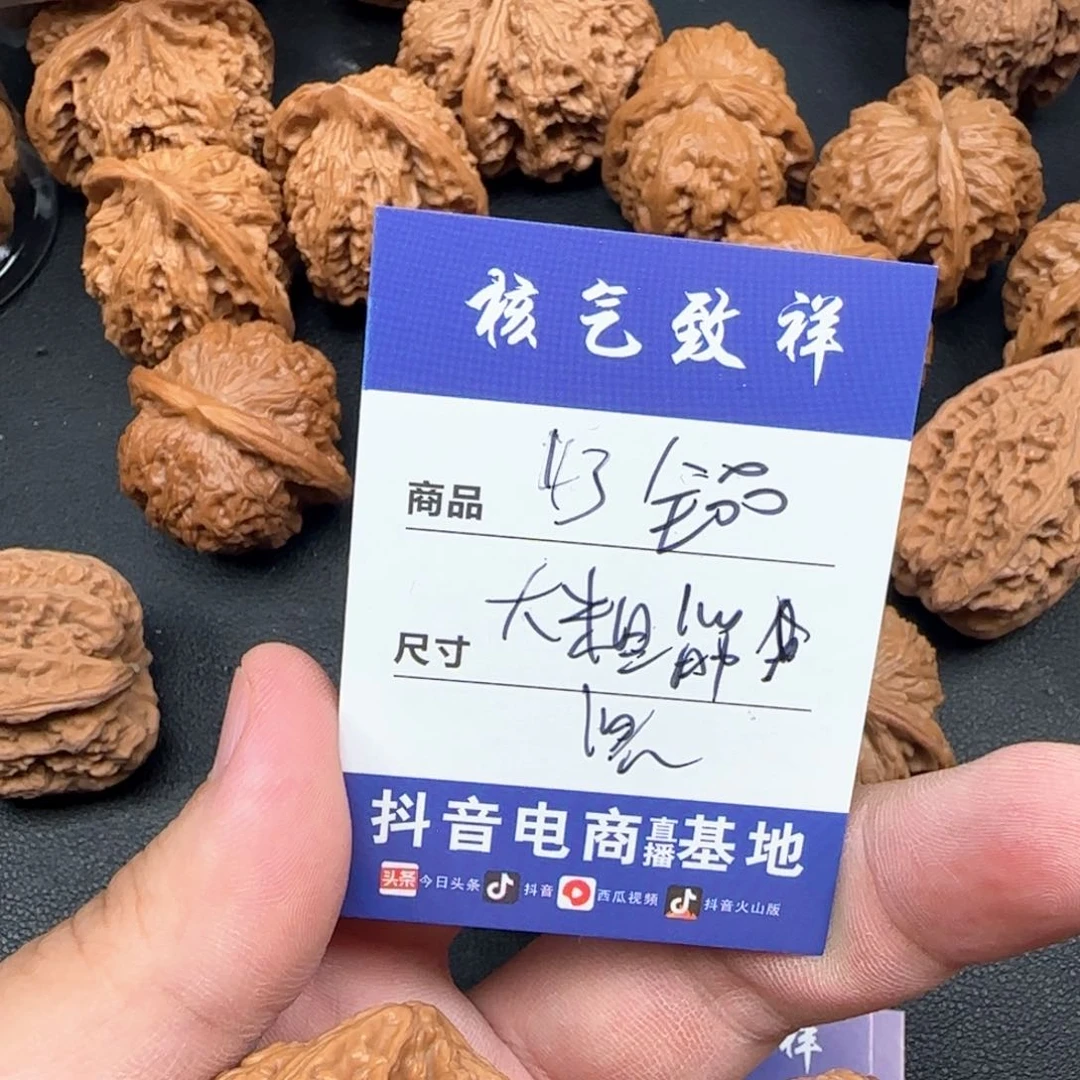 核气致祥
商品 43
尺寸 大粗筋
抖音电商直播基地
头条 今日头条 抖音 西瓜视频 抖音火山版
祥